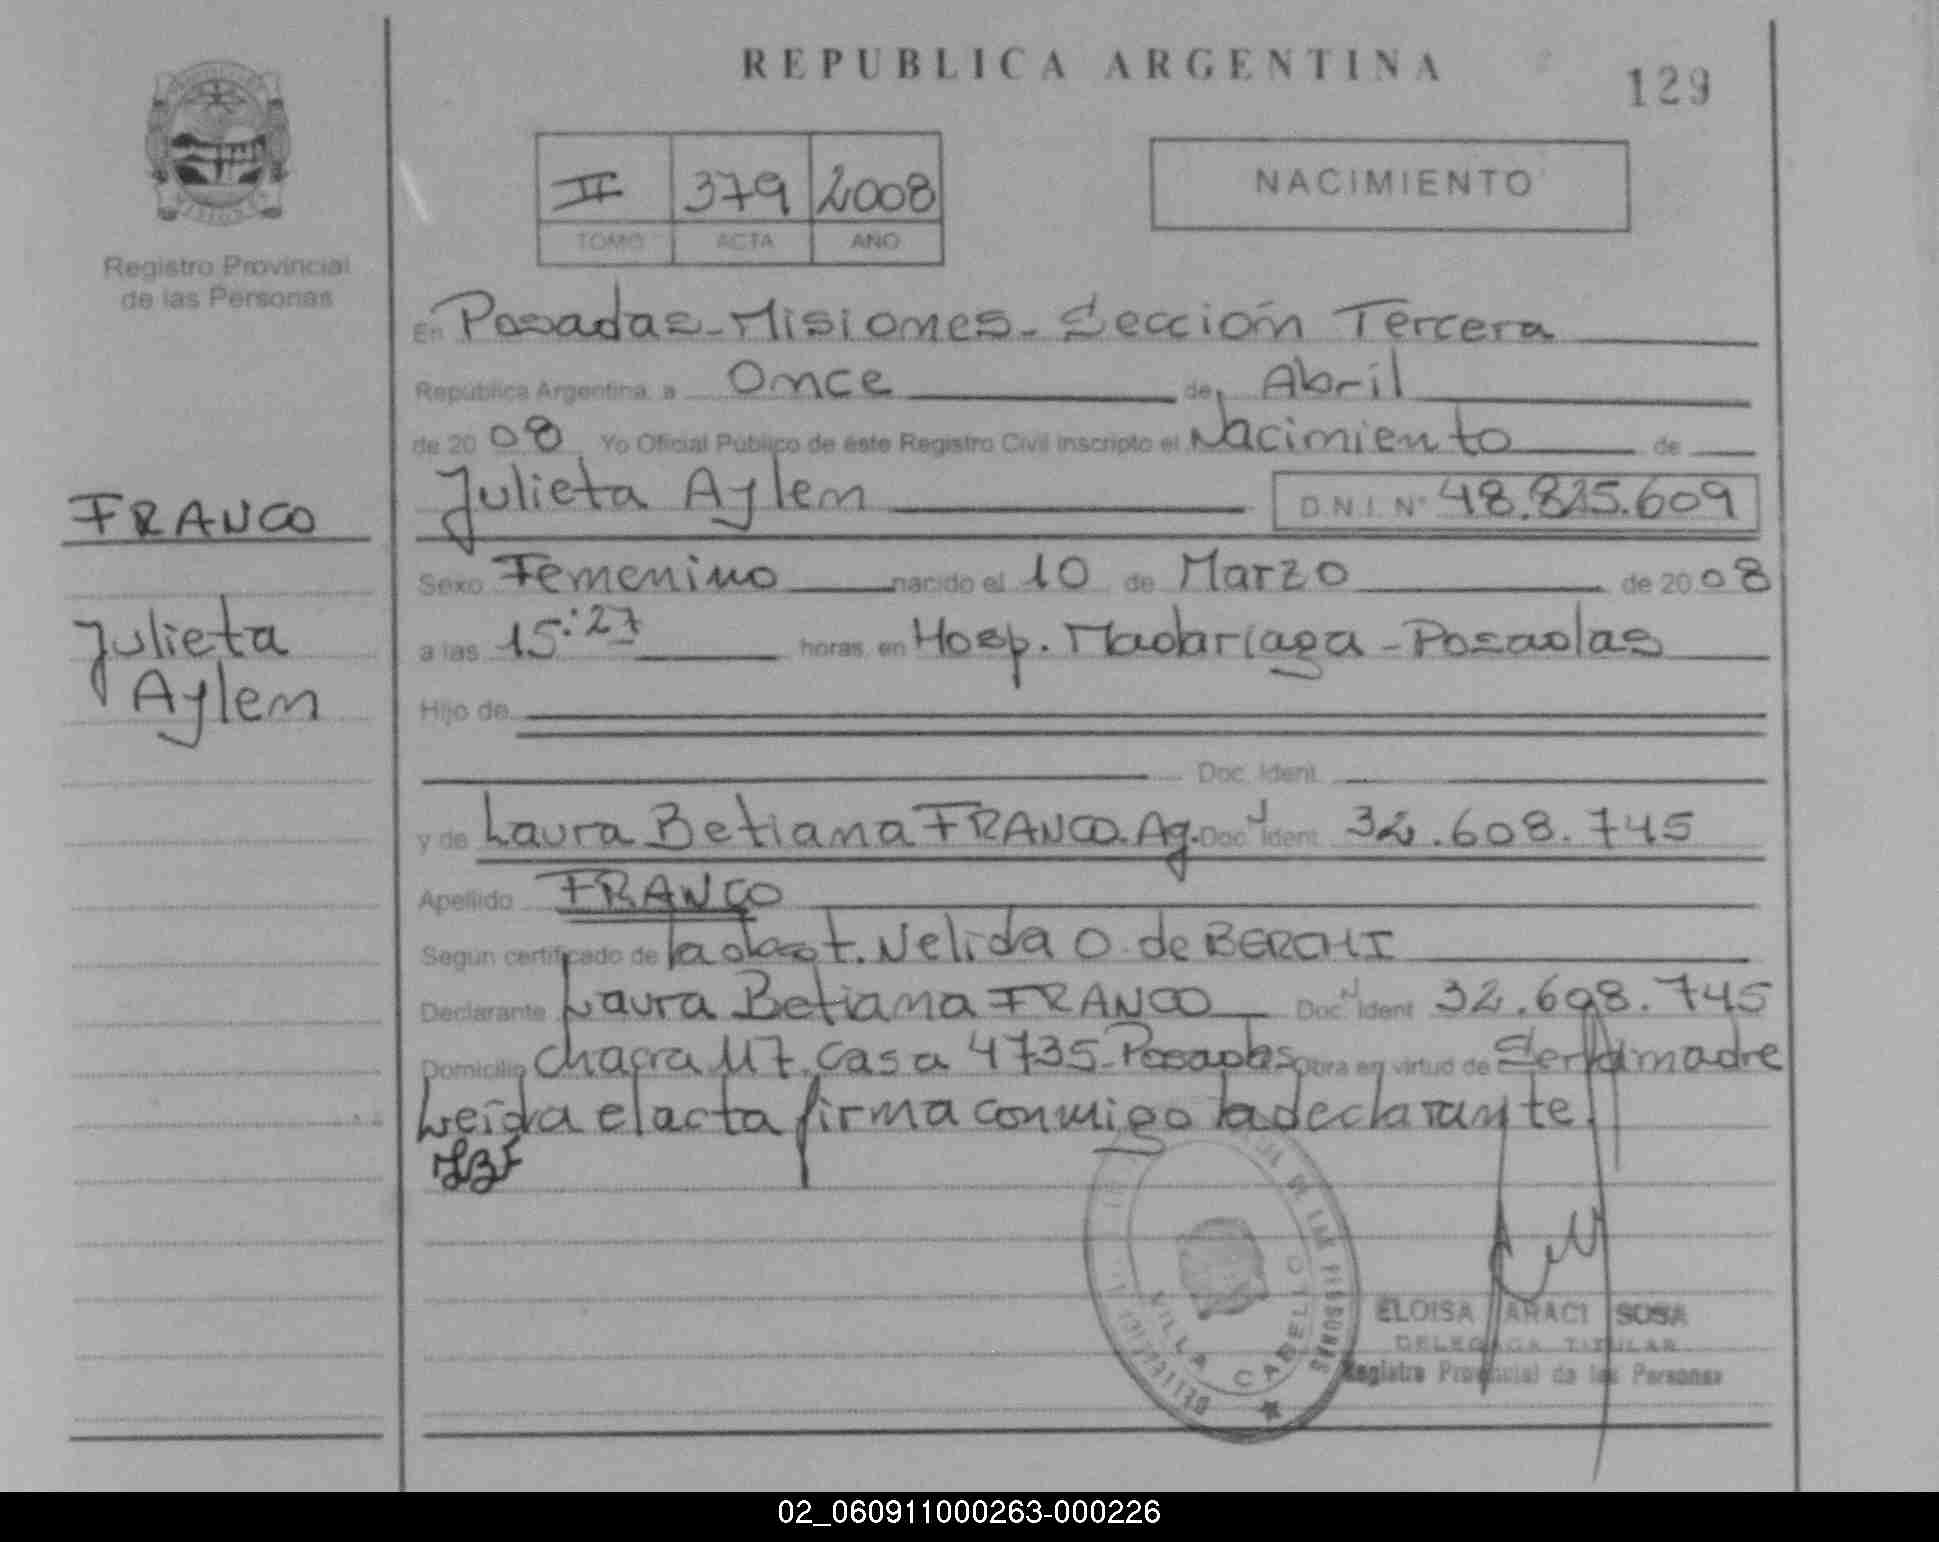 REPUBLICA ARGENTINA
129
II 379 2008
TOMO ACTA AÑO
NACIMIENTO
Registro Provincial
de las Personas
En Posadas-Misiones-Sección Tercera
República Argentina, a Once de Abril
de 2008 Yo Oficial Público de éste Registro Civil inscripto el Nacimiento de
Julieta Aylem D.N.I. Nº 48.825.609
FRANCO
Julieta
Aylem
Sexo Femenino nacido el 10 de Marzo de 2008
a las 15:27 horas, en Hosp. Madariaga-Posadas
Hijo de
Doc. Ident.
y de Laura Betiana FRANCO. Ag. Doc. Ident. 32.608.745
Apellido FRANCO
Según certificado de la obst. Nelida O. de BERCHI
Declarante Laura Betiana FRANCO Doc. Ident. 32.608.745
Domicilio Chacra 117. Casa 4735-Posadas Obra en virtud de Ser la madre
Leída el acta firma conmigo la declarante.
LBF
DE LAS PERSONAS
VILLA CABELLO
ELOISA ARACI SOSA
DELEGADA TITULAR
Registro Provincial de las Personas
02_060911000263-000226